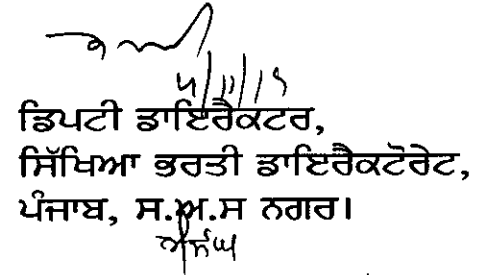 ਡਿਪਟੀ ਡਾਇਰੈਕਟਰ,
ਸਿੱਖਿਆ ਭਰਤੀ ਡਾਇਰੈਕਟੋਰੇਟ,
ਪੰਜਾਬ, ਸ.ਅ.ਸ ਨਗਰ।